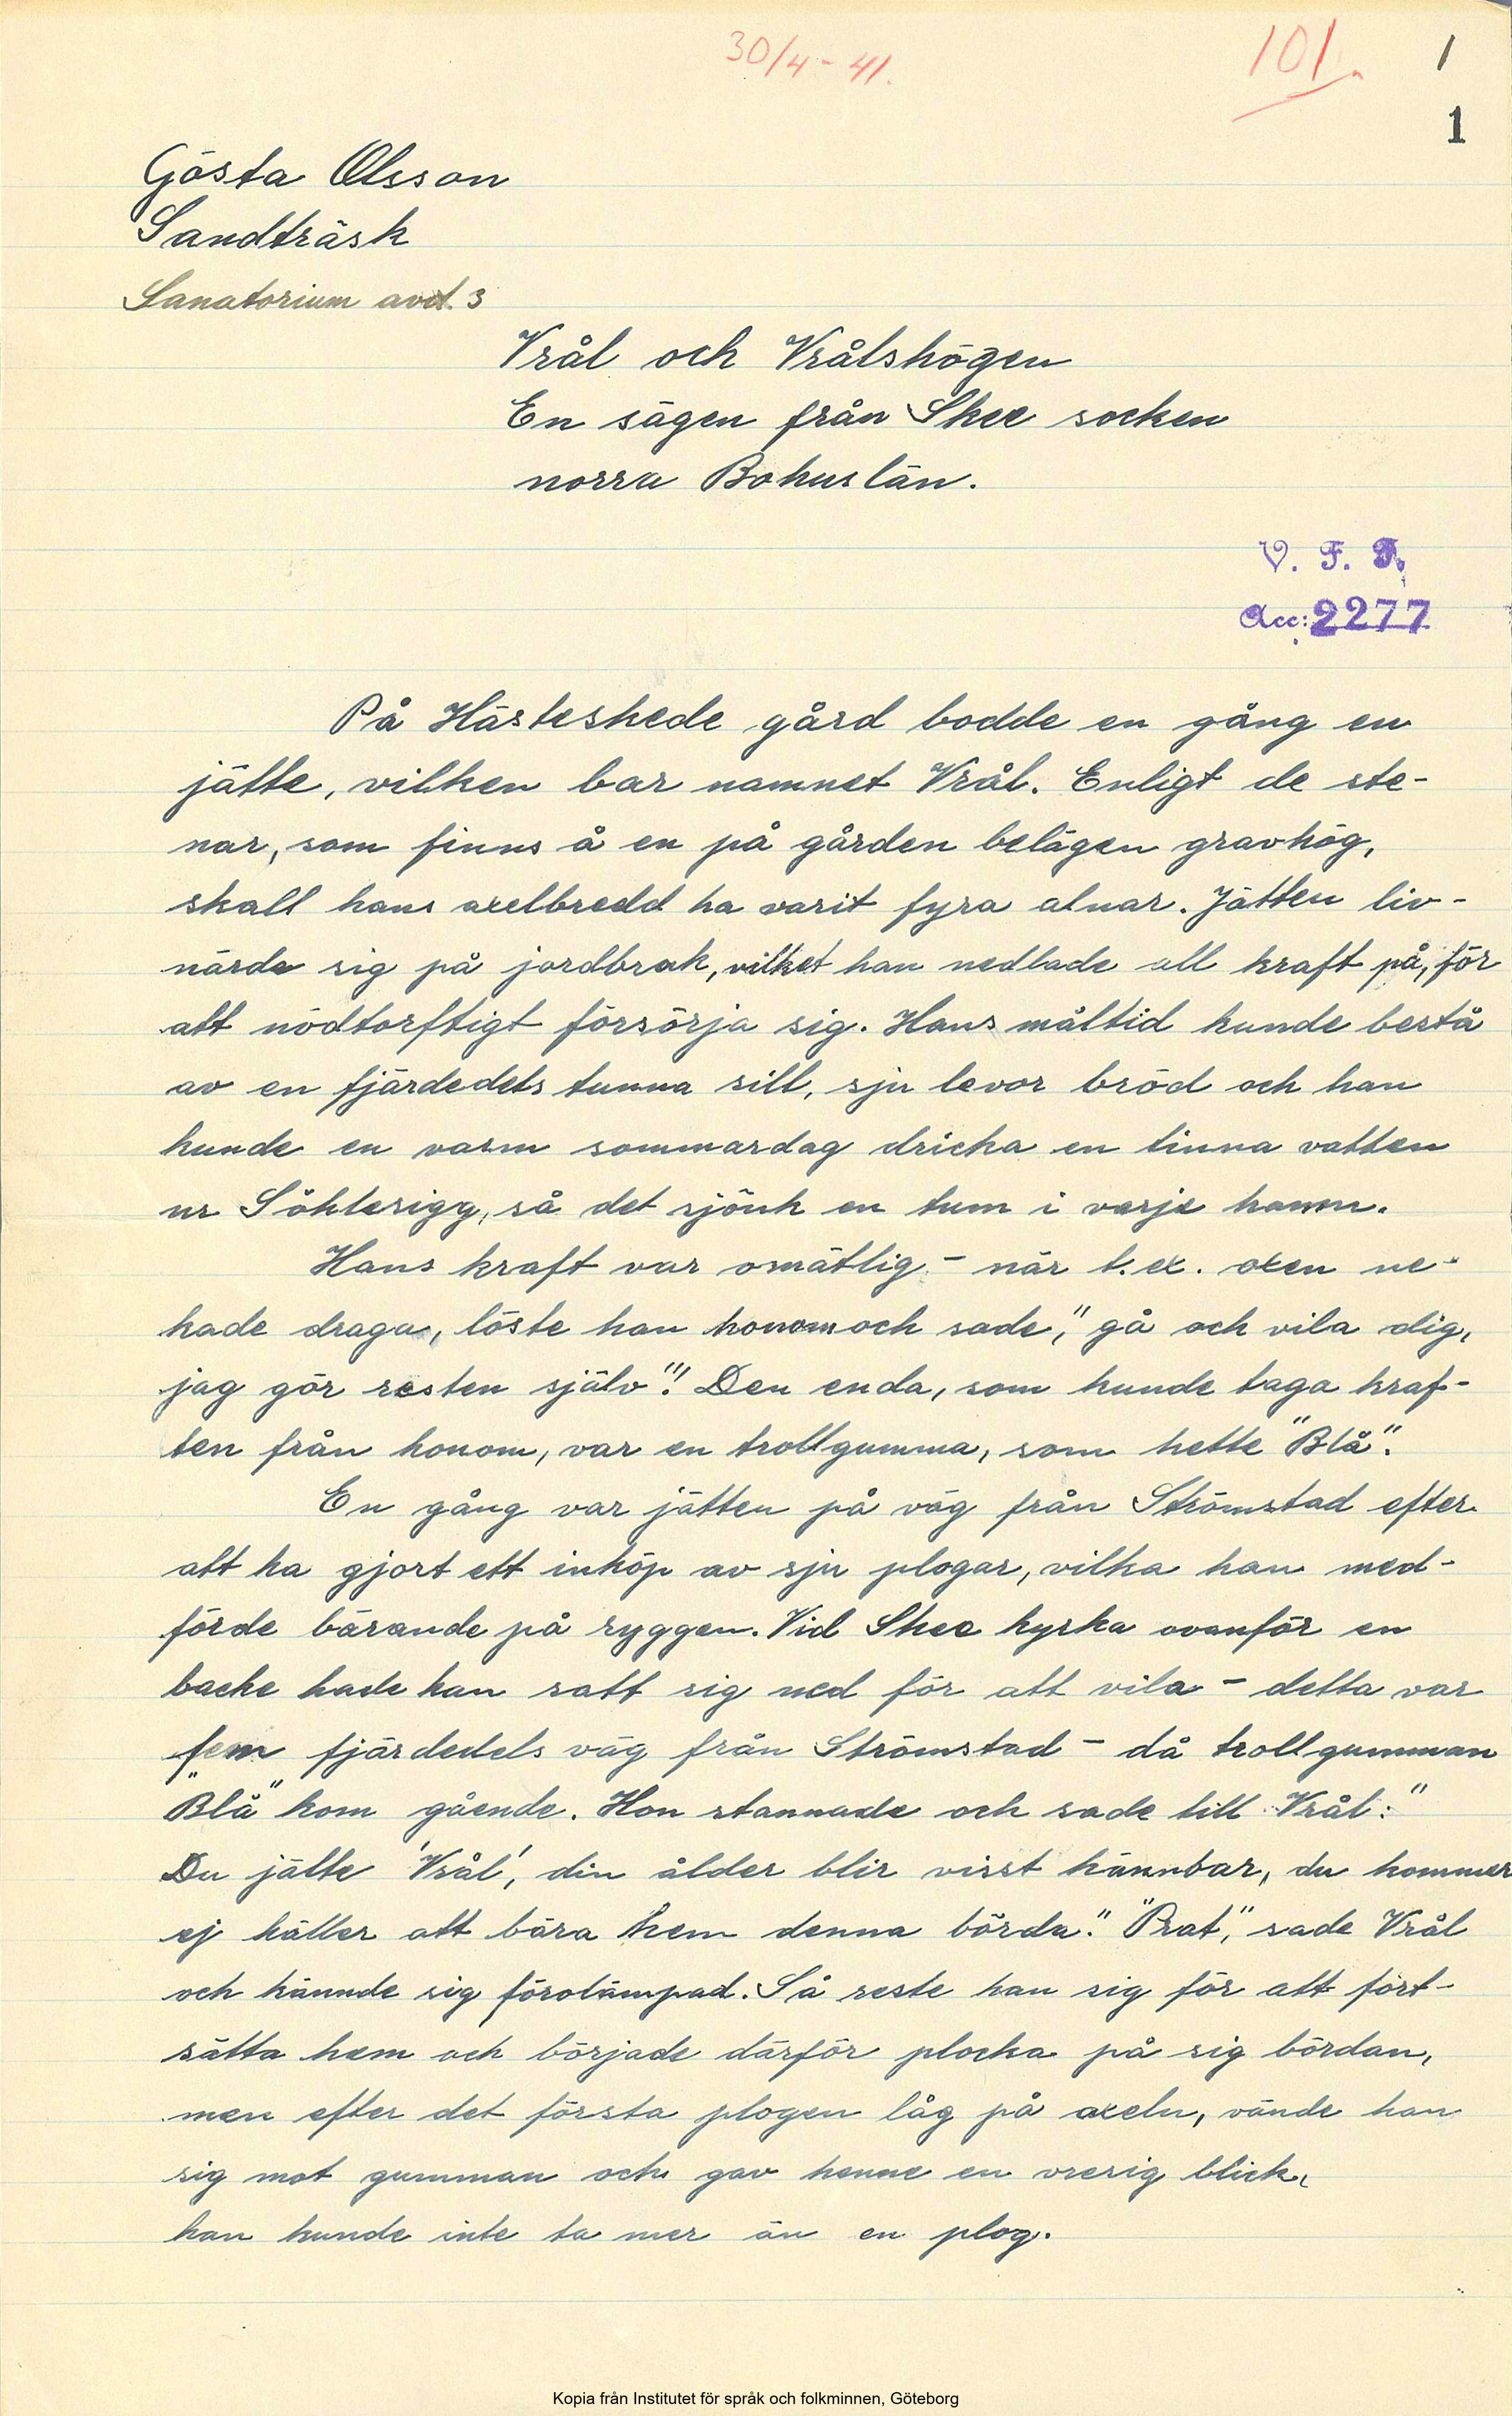 30/4 - 41.
101.
1
1
Gösta Olsson
Sandträsk
Sanatorium avd. 3
Vrål och Vrålshögen
En sägen från Skee socken
norra Bohuslän.
V. F. F.
Acc: 2277
På Hästeskede gård bodde en gång en
jätte, vilken bar namnet Vrål. Enligt de ste-
nar, som finns å en på gården belägen gravhög,
skall hans axelbredd ha varit fyra alnar. Jätten liv-
närde sig på jordbruk, vilket han nedlade all kraft på, för
att nödtorftigt försörja sig. Hans måltid kunde bestå
av en fjärdedels tunna sill, sju levor bröd och han
kunde en varm sommardag dricka en tinna vatten
ur så det sjönk en tum i varje hamn.
Hans kraft var omätlig - när t.ex. oxen ne-
kade draga, löste han honom och sade, "gå och vila dig,
jag gör resten själv"! Den enda, som kunde taga kraf-
ten från honom, var en trollgumma, som hette "Blå".
En gång var jätten på väg från Strömstad efter
att ha gjort ett inköp av sju plogar, vilka han med-
förde bärande på ryggen. Vid Skee kyrka ovanför en
backe hade han satt sig ned för att vila - detta var
fem fjärdedels väg från Strömstad - då trollgumman
"Blå" kom gående. Hon stannade och sade till Vrål: "
Du jätte 'Vrål', din ålder blir visst kännbar, du kommer
ej håller att bära hem denna börda." "Prat," sade Vrål
och kännde sig förolämpad. Så reste han sig för att fort-
sätta hem och började därför plocka på sig bördan,
men efter det första plogen låg på axeln, vände han
sig mot gumman och gav henne en vresig blick,
han kunde inte ta mer än en plog.
Kopia från Institutet för språk och folkminnen, Göteborg